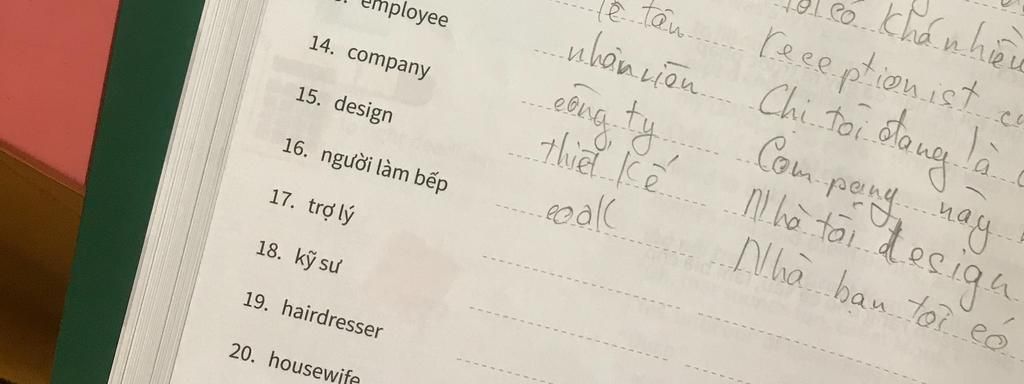 employee lễ tân tôi có khá nhiều
14. company nhân viên receptionist
15. design công ty Chị tôi đang là
16. người làm bếp thiết kế Company này
17. trợ lý cook Nhà tôi design
18. kỹ sư Nhà bạn tôi có
19. hairdresser
20. housewife